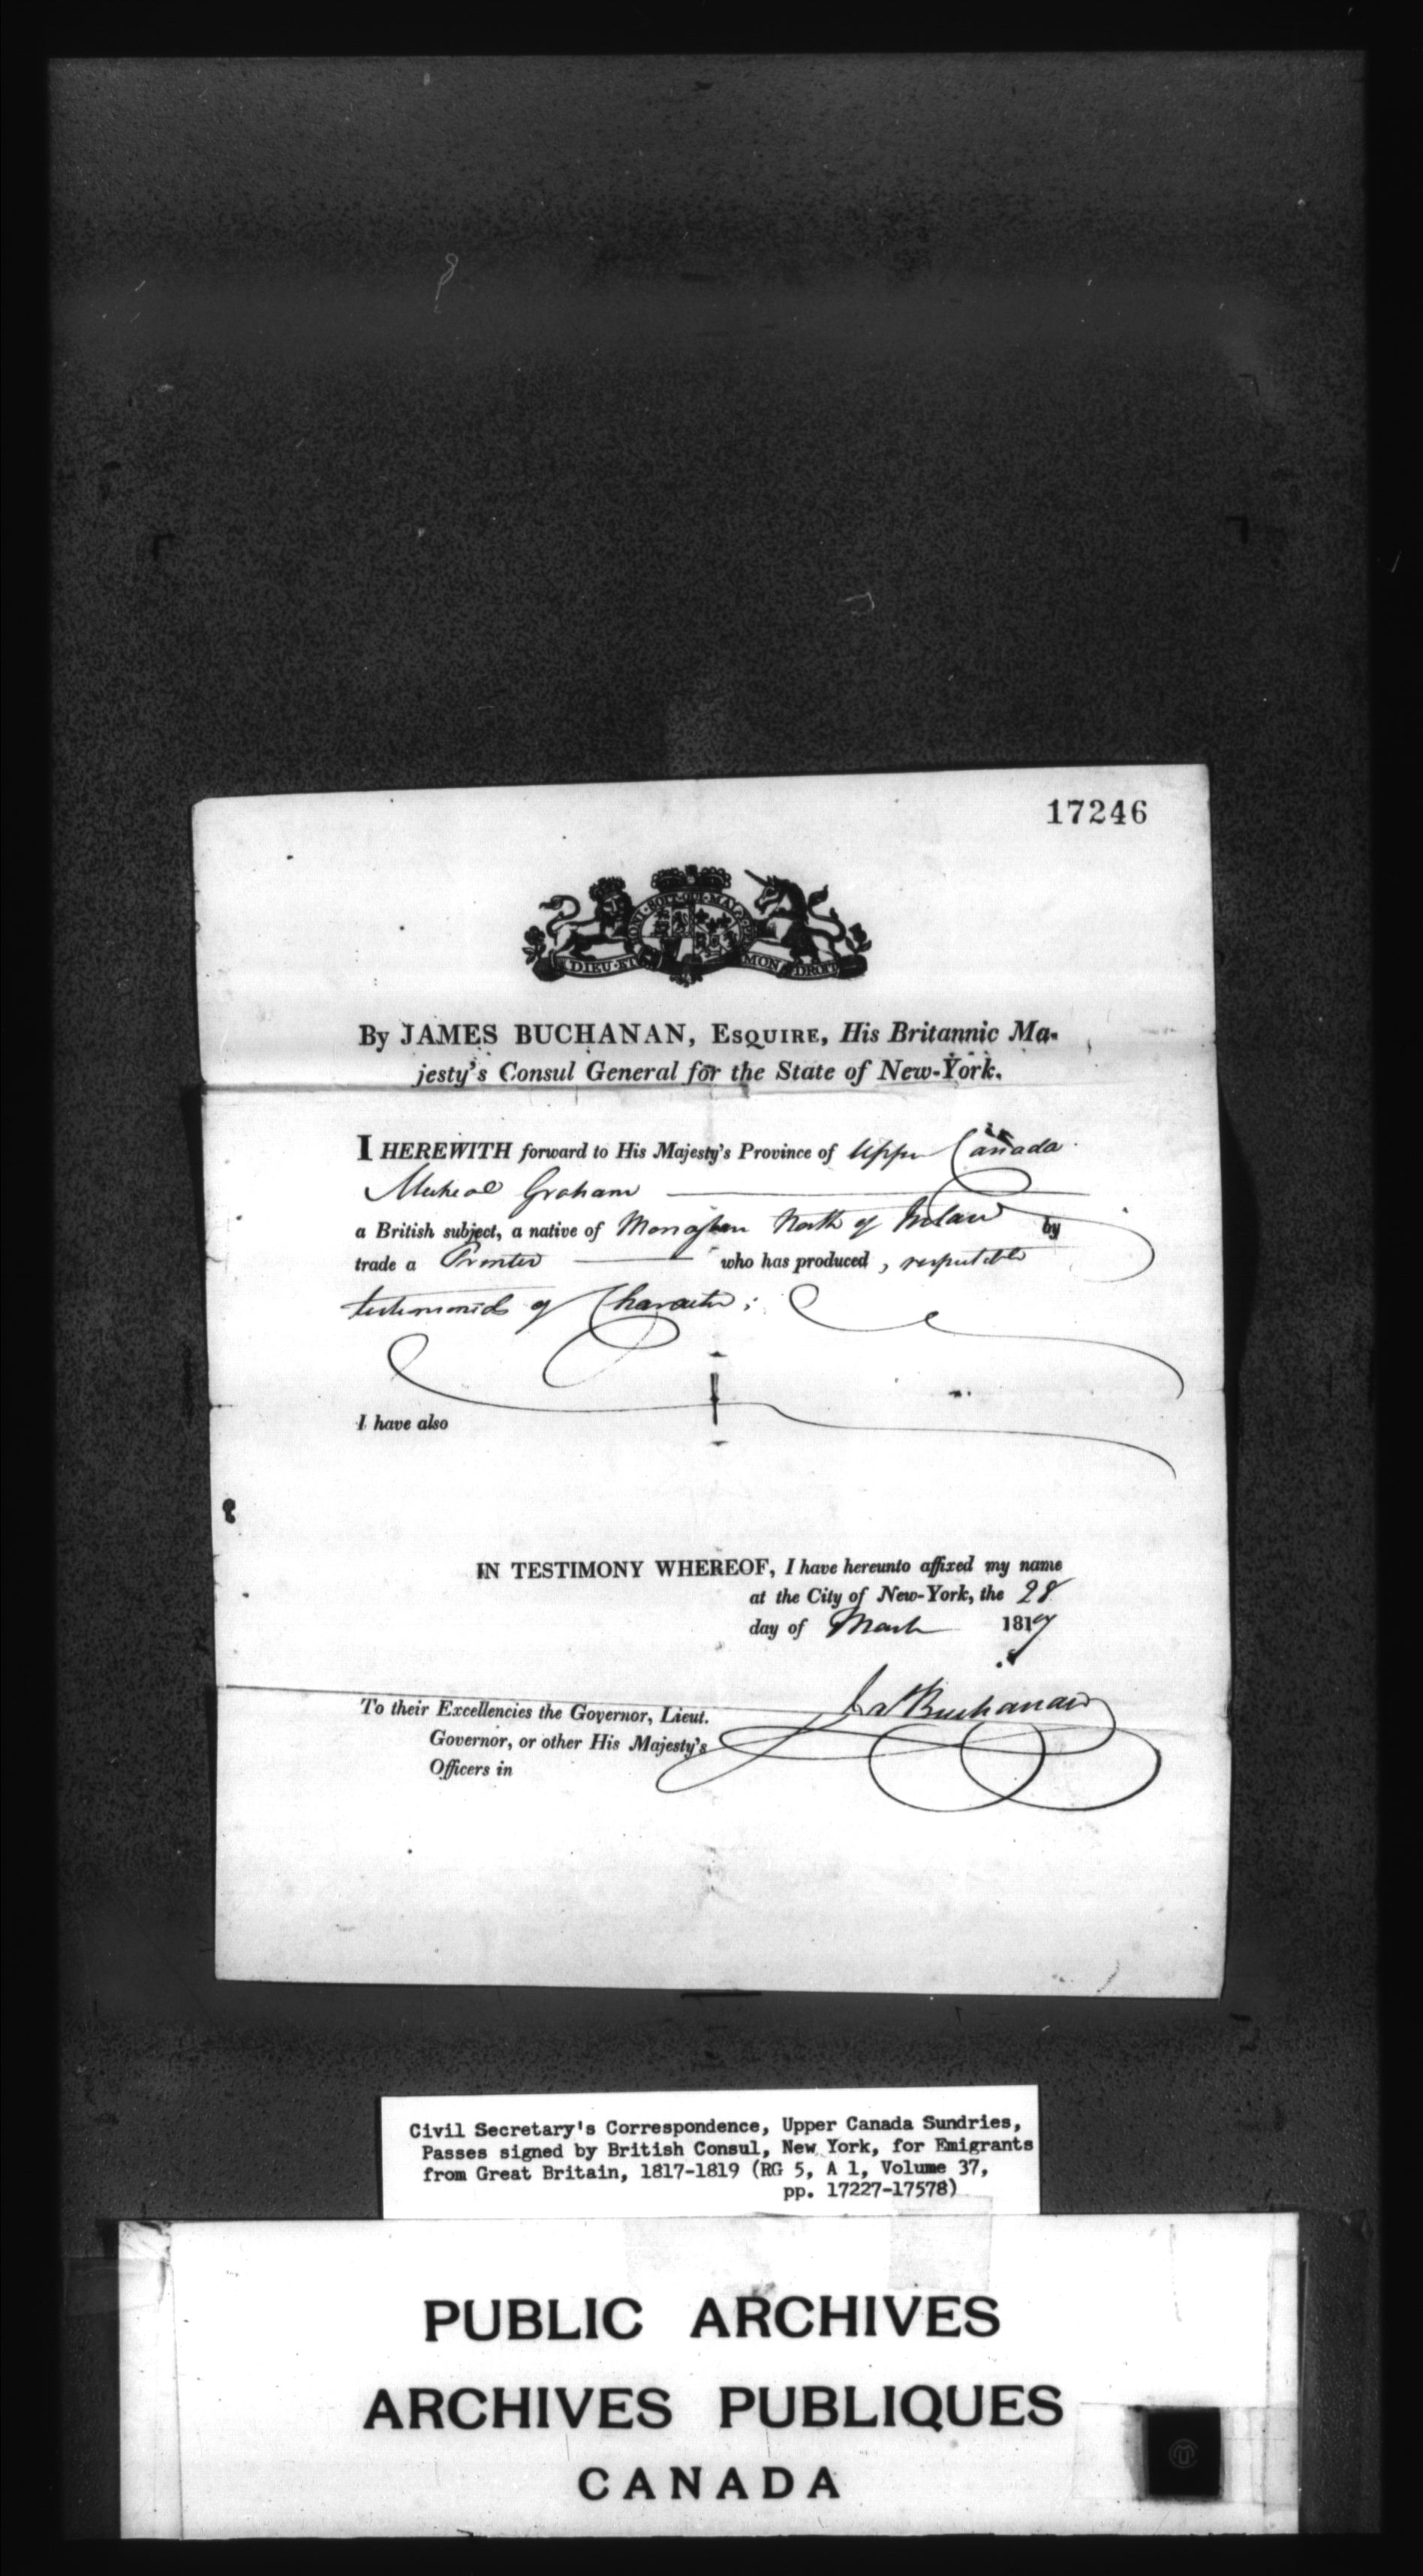 17246
HONI · SOIT · QUI · MAL · Y
DIEU · ET MON DROIT
By JAMES BUCHANAN, ESQUIRE, His Britannic Ma-
jesty's Consul General for the State of New-York.
I HEREWITH forward to His Majesty's Province of Upper Canada
Micheal Graham
a British subject, a native of Monaghan North of Ireland by
trade a Printer who has produced, respectable
testimonials of Character;
I have also
IN TESTIMONY WHEREOF, I have hereunto affixed my name
at the City of New-York, the 28
day of March 1817
Jas Buchanan
To their Excellencies the Governor, Lieut.
Governor, or other His Majesty's
Officers in
Civil Secretary's Correspondence, Upper Canada Sundries,
Passes signed by British Consul, New York, for Emigrants
from Great Britain, 1817-1819 (RG 5, A 1, Volume 37,
pp. 17227-17578)
PUBLIC ARCHIVES
ARCHIVES PUBLIQUES
CANADA